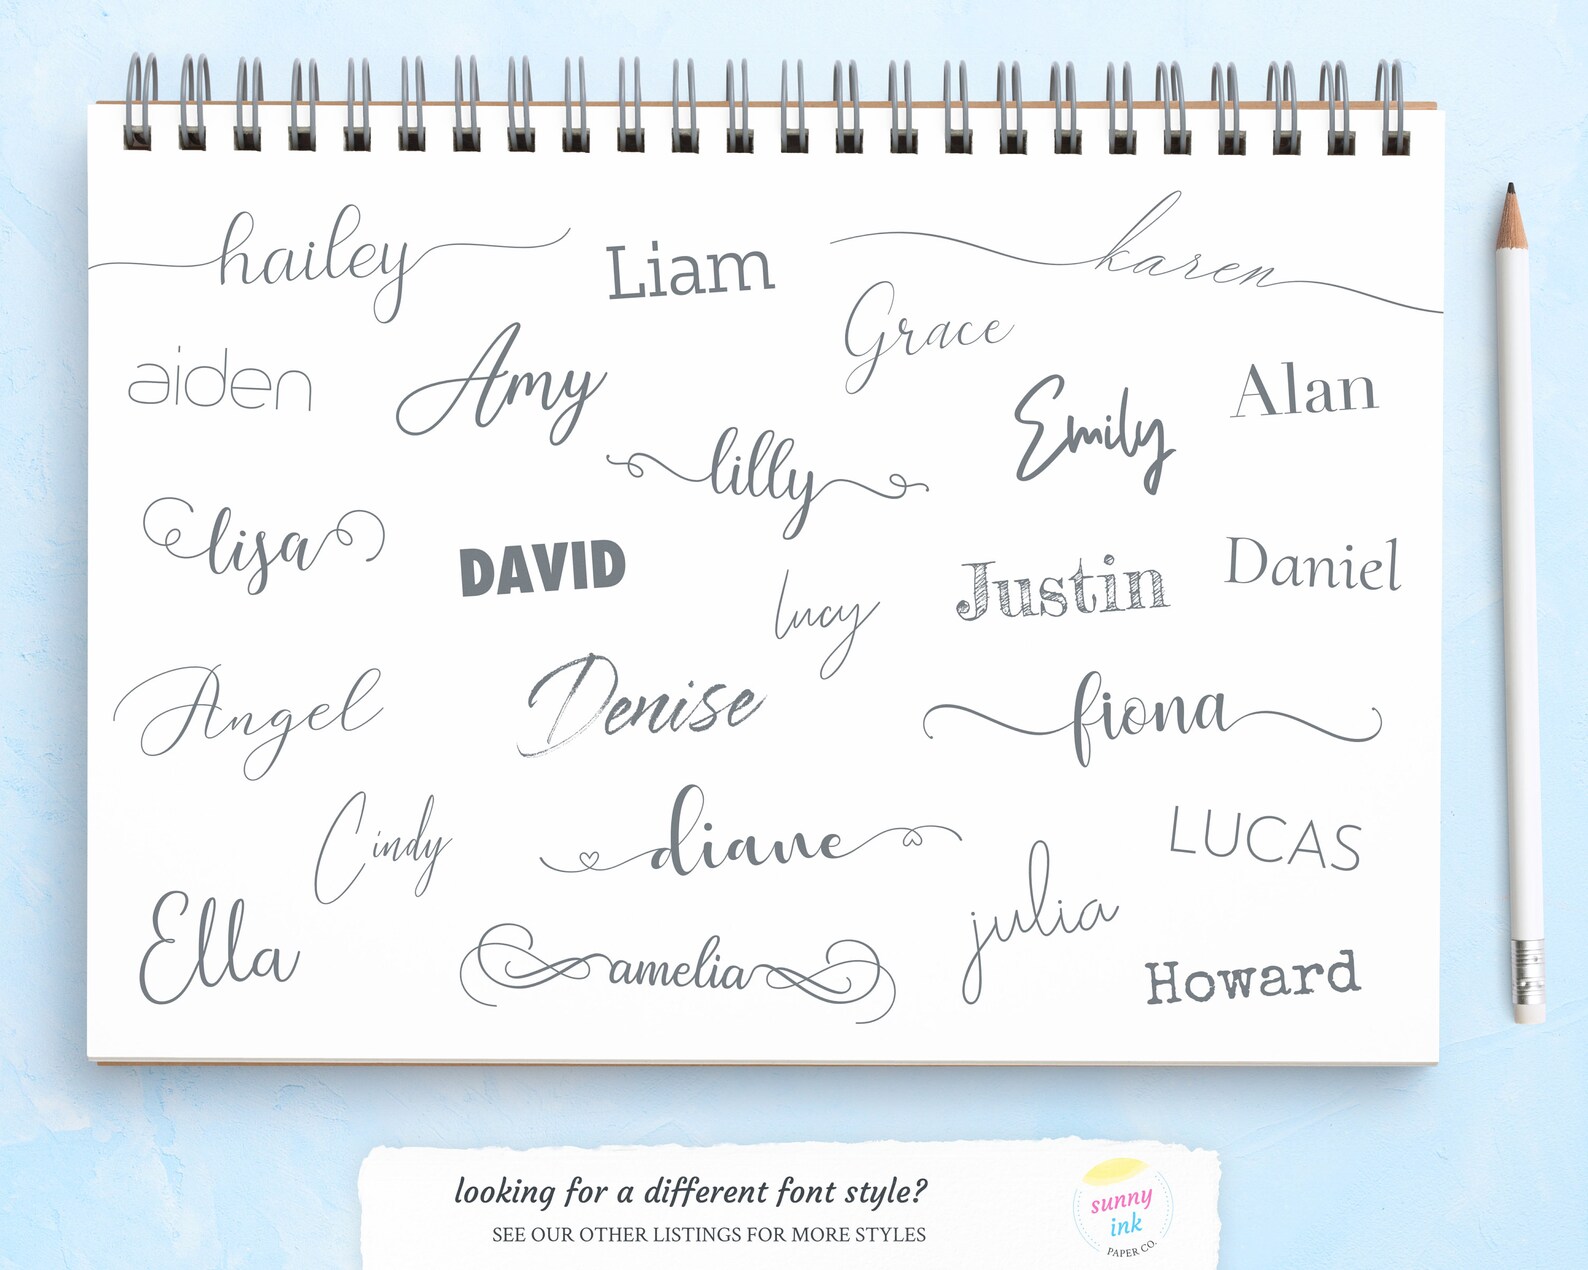 hailey
Liam
karen
Grace
aiden
Amy
Emily
Alan
lilly
lisa
DAVID
Justin
Daniel
lucy
Angel
Denise
fiona
Cindy
diane
LUCAS
Ella
amelia
julia
Howard
looking for a different font style?
SEE OUR OTHER LISTINGS FOR MORE STYLES
sunny
ink
PAPER CO.